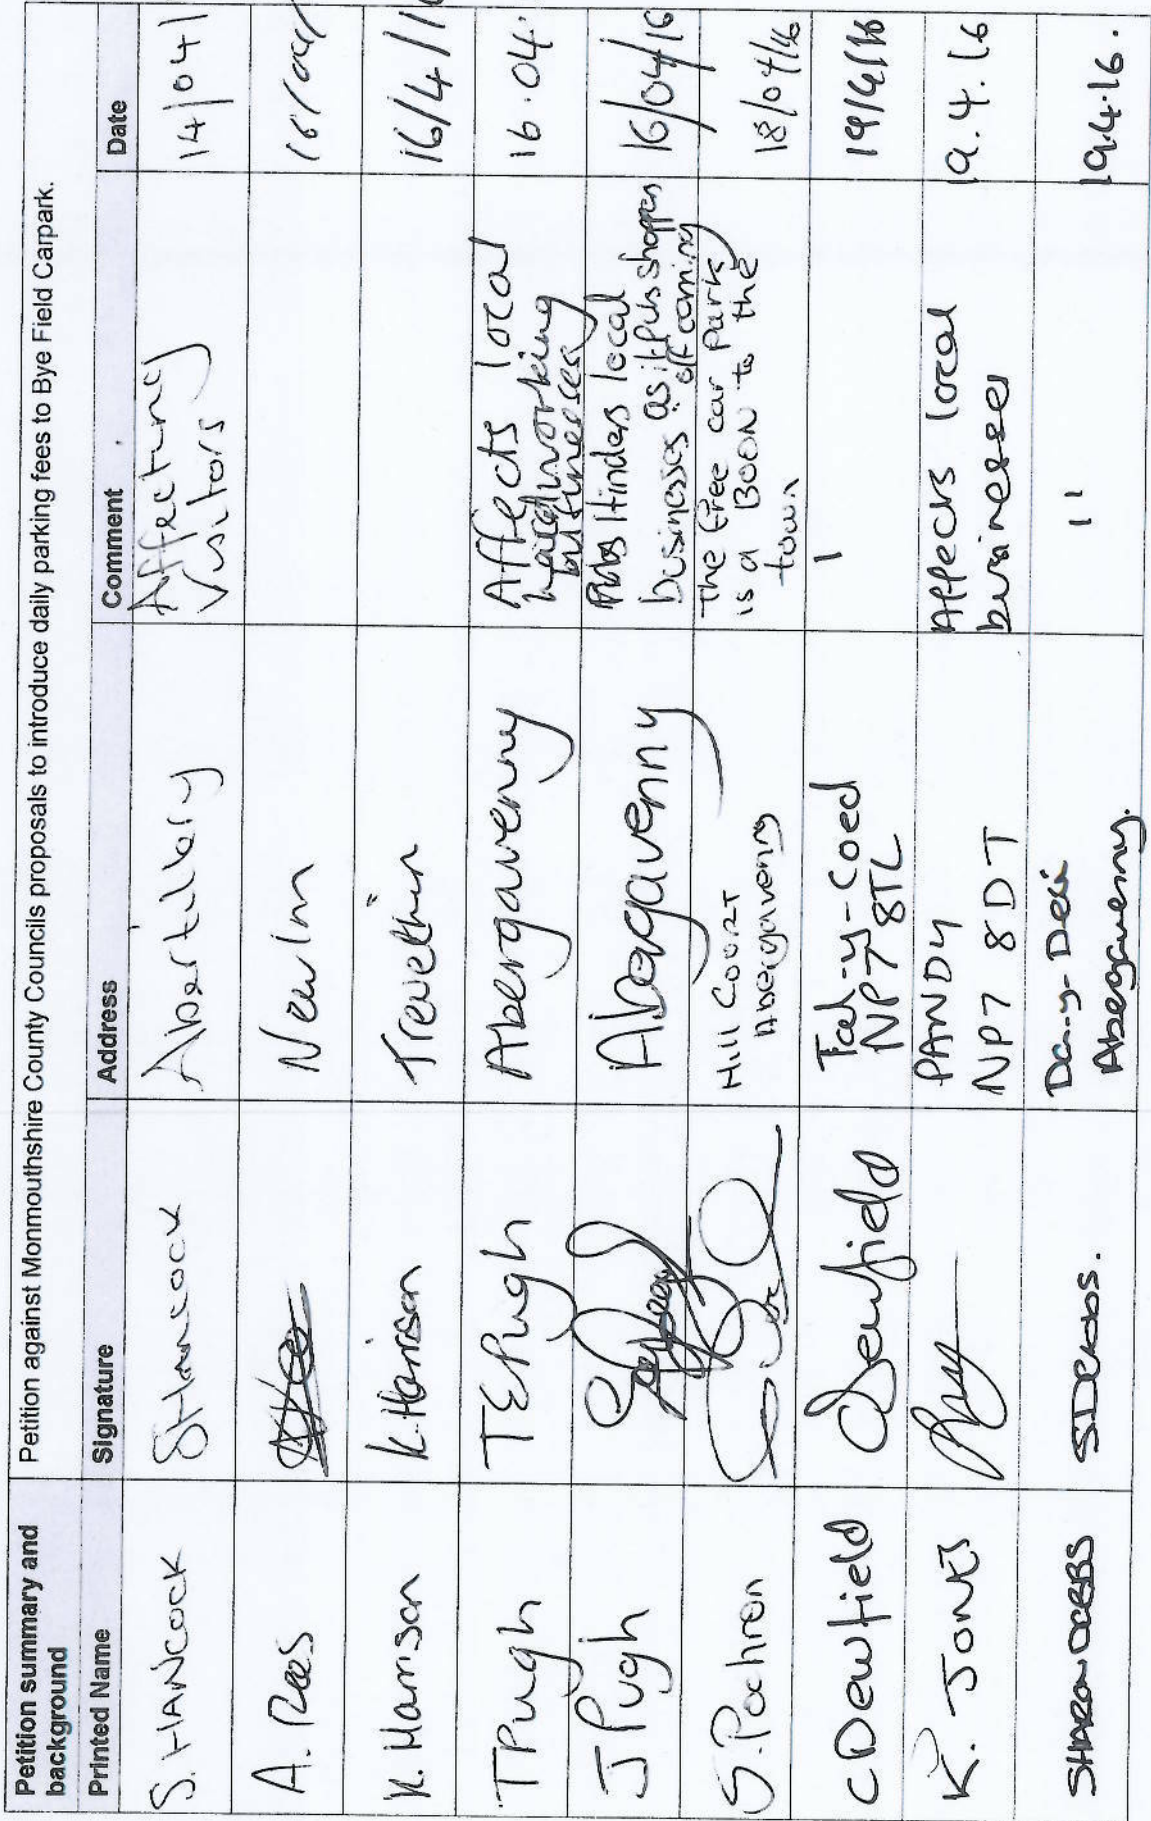 Petition summary and background
Petition against Monmouthshire County Councils proposals to introduce daily parking fees to Bye Field Carpark.
Printed Name Signature Address Comment Date
S. HANCOCK SHANCOCK Abertillery Affecting visitors 14/04/
A. Rees
K. Harrison K. Harrison Trevethin 16/4/1
T Pugh T E Pugh Abergavenny Affects local hardworking businesses 16.04.
J Pugh Abergavenny Hinders local businesses as it puts shoppers off coming 16/04/16
S. Pochron Hill Court Abergavenny The free car park is a BOON to the town 18/04/16
C Dewfield Dewfield NP7 8TL 19/4/16
K. JONES PANDY NP7 8DT Affects local businesses 19.4.16
SHARON Abergavenny. 11 19.4.16.